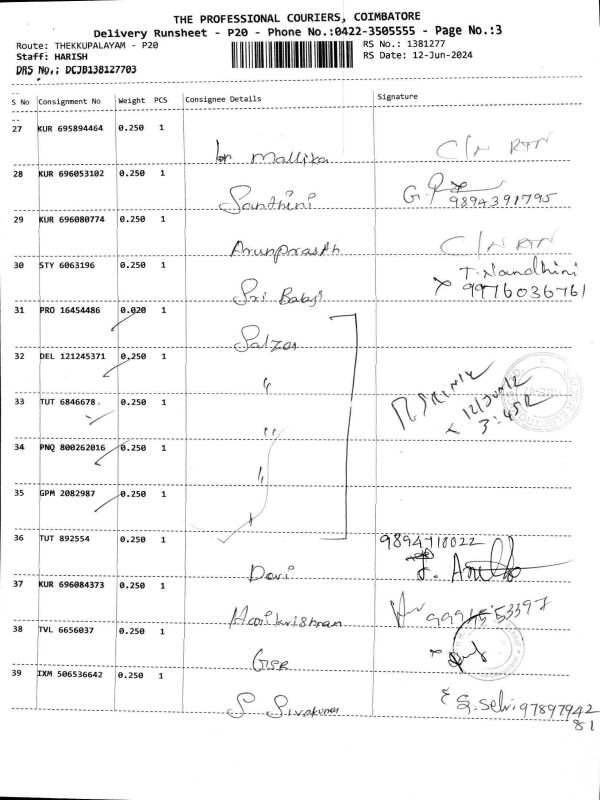 THE PROFESSIONAL COURIERS, COIMBATORE
Delivery Runsheet - P20 - Phone No.:0422-3505555 - Page No.:3
Route: THEKKUPALAYAM - P20 RS No.: 1381277
Staff: HARISH RS Date: 12-Jun-2024
DRS No.: DCJB138127703
S No Consignment No Weight PCS Consignee Details Signature
27 KUR 695894464 0.250 1
Mallika C/N RTN
28 KUR 696053102 0.250 1
Santhini 9894391795
29 KUR 696080774 0.250 1
Arunprasth C/N RTN
30 STY 6063196 0.250 1 T. Nandhini
Sri Balaji 9976036761
31 PRO 16454486 0.020 1
Salzer
32 DEL 121245371 0.250 1
"
33 TUT 6846678 0.250 1 12/Jun/2
" 3:45
34 PNQ 800262016 0.250 1
"
35 GPM 2082987 0.250 1
36 TUT 892554 0.250 1 9894710022
Devi
37 KUR 696084373 0.250 1
Harikrishnan
38 TVL 6656037 0.250 1
GSR
39 IXM 506536642 0.250 1
S Sivakumar S. Selvi 97897942
81